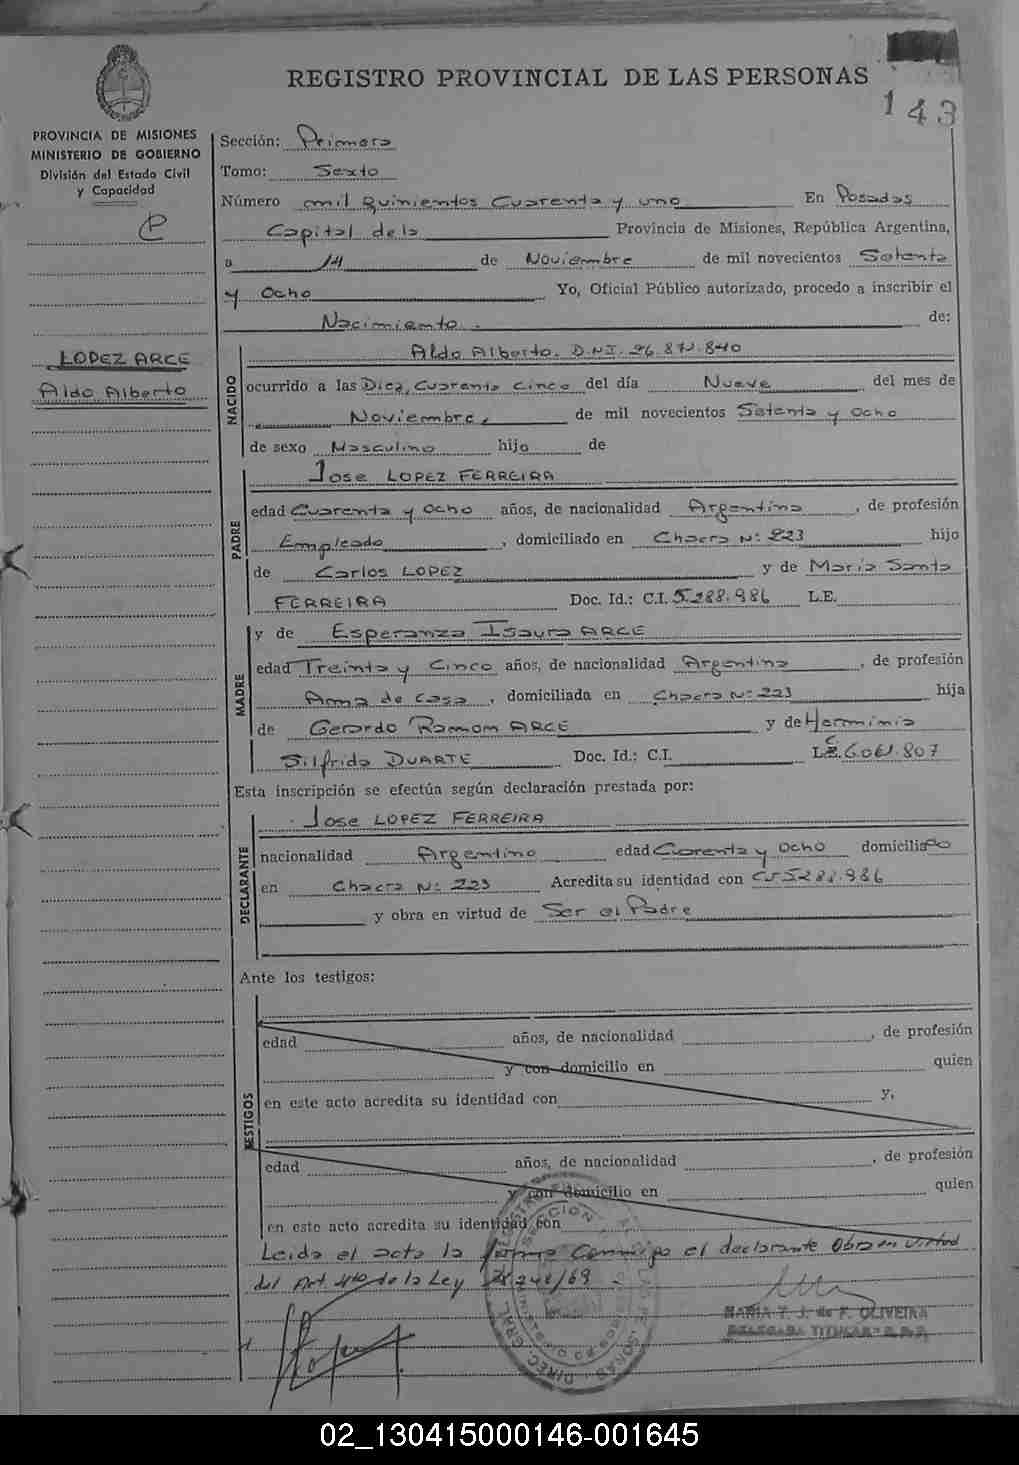 REGISTRO PROVINCIAL DE LAS PERSONAS
143
PROVINCIA DE MISIONES
MINISTERIO DE GOBIERNO
División del Estado Civil
y Capacidad
LOPEZ ARCE
Aldo Alberto
Sección: Primera
Tomo: Sexto
Número mil Quinientos Cuarenta y uno En Posadas
Capital de la Provincia de Misiones, República Argentina,
a 14 de Noviembre de mil novecientos Setenta
y Ocho Yo, Oficial Público autorizado, procedo a inscribir el
Nacimiento. de:
NACIDO
Aldo Alberto. D.N.I. 26.871.840
ocurrido a las Diez, Cuarenta Cinco del día Nueve del mes de
Noviembre, de mil novecientos Setenta y Ocho
de sexo Masculino hijo de
PADRE
Jose LOPEZ FERREIRA
edad Cuarenta y Ocho años, de nacionalidad Argentina, de profesión
Empleado, domiciliado en Chacra N: 223 hijo
de Carlos LOPEZ y de Maria Santa
FERREIRA Doc. Id.: C.I. 5.288.986 L.E.
MADRE
y de Esperanza Isaura ARCE
edad Treinta y Cinco años, de nacionalidad Argentina, de profesión
Ama de Casa, domiciliada en Chacra N: 223 hija
de Gerardo Ramom ARCE y de Herminia
Silfrida DUARTE Doc. Id.: C.I. L.C. 6.061.807
Esta inscripción se efectúa según declaración prestada por:
DECLARANTE
Jose LOPEZ FERREIRA
nacionalidad Argentino edad Corenta y Ocho domiciliado
en Chacra N: 223 Acredita su identidad con CI 5288.986
y obra en virtud de Ser el Padre
Ante los testigos:
TESTIGOS
edad años, de nacionalidad, de profesión
y con domicilio en quien
en este acto acredita su identidad con y,
edad años, de nacionalidad, de profesión
y con domicilio en quien
en este acto acredita su identidad con
Leida el acta la firma Conmigo el declarante Obra en virtud
del Art 4to de la Ley 18248/69
MARIA T. J. de F. OLIVEIRA
DELEGADA TITULAR
02_130415000146-001645